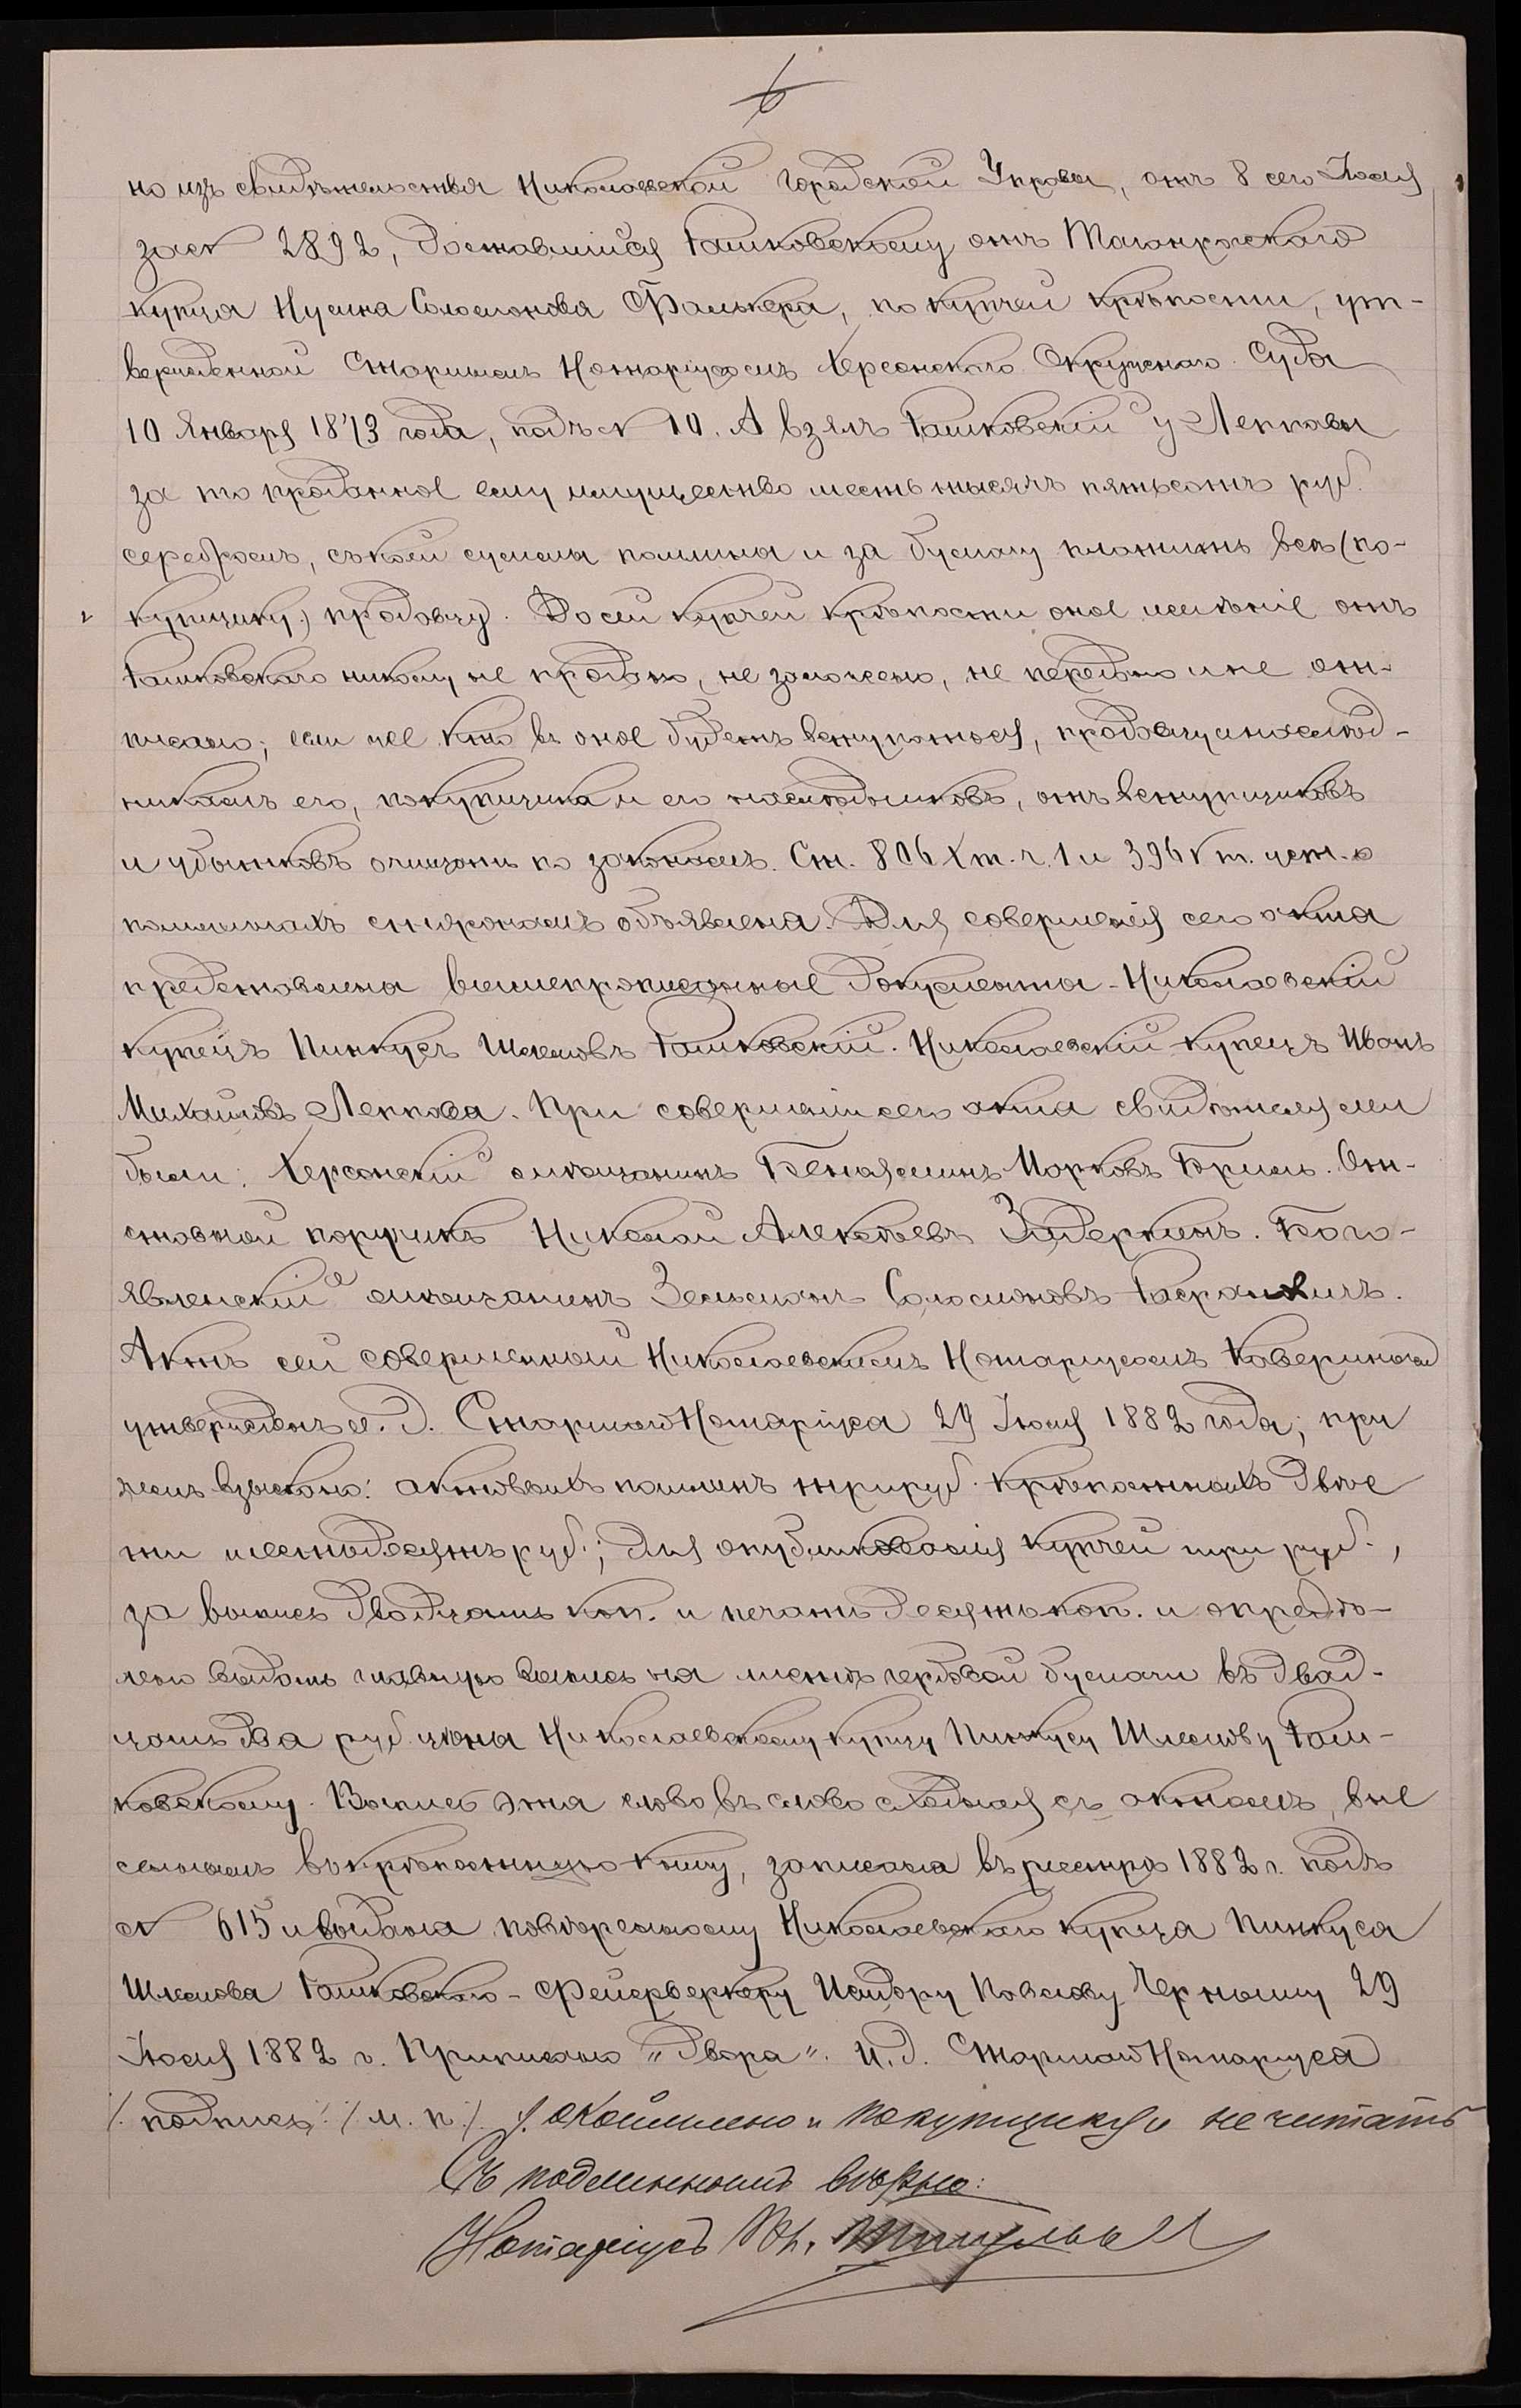 6
но изъ свидѣтельства Николаевской Городской Управы, отъ 8 сего Іюля
за № 2892, доставшійся Гашковскому отъ Таганрогскаго
купца Нусина Соломонова Фалькера, по купчей крѣпости, ут-
вержденной Старшимъ Нотаріусомъ Херсонскаго Окружнаго Суда
10 Января 1873 года, подъ № 10. А взялъ Гашковскій у Леппова
за то проданное ему имущество шесть тысячъ пятьсотъ руб.
серебромъ, съ коей суммы пошлины и за бумагу платить всѣ (по-
купщику) продавцу. До сей купчей крѣпости оное имѣніе отъ
Гашковскаго никому не продано, не заложено, не передано и не от-
писано; если же кто въ оное будетъ вступаться, продавцу и наслѣд-
никамъ его, покупщика и его наслѣдниковъ, отъ вступщиковъ
и убытковъ очищать по законамъ. Ст. 806 X т. ч. 1 и 396 V т. уст. о
пошлинахъ сторонамъ объявлена. Для совершенія сего акта
представлены вышепрописанные документы - Николаевскій
купецъ Пинкусъ Шлемовъ Гашковскій. Николаевскій купецъ Иванъ
Михайловъ Леппова. При совершеніи сего акта свидѣтелями
были: Херсонскій мѣщанинъ Беньяминъ Марковъ Бриль. От-
ставной поручикъ Николай Алексѣевъ Зидеркинъ. Бого-
явленскій мѣщанинъ Зельманъ Соломоновъ Гаскановичъ.
Актъ сей совершенный Николаевскимъ Нотаріусомъ Каверинымъ
утвержденъ и. д. Старшаго Нотаріуса 29 Іюля 1882 года; при
чемъ взыскано: актовыхъ пошлинъ три руб. крѣпостныхъ двѣс
ти шестьдесятъ руб.; для опубликованія купчей три руб.,
за выпись двадцать коп. и печать десять коп. и опредѣ-
лено выдать главную выпись на листѣ гербовой бумаги въ двад-
цать два руб. цѣны Николаевскому купцу Пинкусу Шлемову Гаш-
ковскому. Выпись эта слово въ слово сходная съ актомъ, вне
сеннымъ въ крѣпостную книгу, записана въ реестръ 1882 г. подъ
№ 615 и выдана повѣренному Николаевскаго купца Пинкуса
Шлемова Гашковскаго - Фейерверкеру Исидору Павлову Черному 29
Іюля 1882 г. Приписано "двора". И. д. Старшаго Нотаріуса
/: подпись :/ (м. п.) /: окаймлено "покупщику" не читать
Съ подлиннымъ вѣрно:
Нотаріусъ